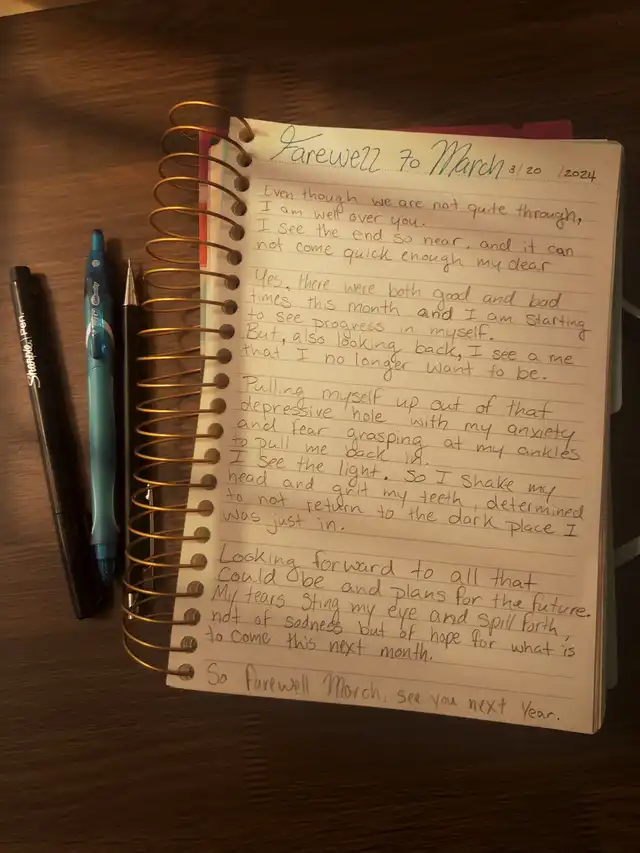 Farewell to March 3/20 /2024
Even though we are not quite through,
I am well over you.
I see the end so near, and it can
not come quick enough my dear
Yes, there were both good and bad
times this month and I am starting
to see progress in myself.
But, also looking back, I see a me
that I no longer want to be.
Pulling myself up out of that
depressive hole with my anxiety
and fear grasping at my ankles
to pull me back in.
I see the light. So I shake my
head and grit my teeth, determined
to not return to the dark place I
was just in.
Looking forward to all that
could be and plans for the future.
My tears sting my eye and spill forth,
not of sadness but of hope for what is
to come this next month.
So Farewell March, see you next year.
Sharpie Pen